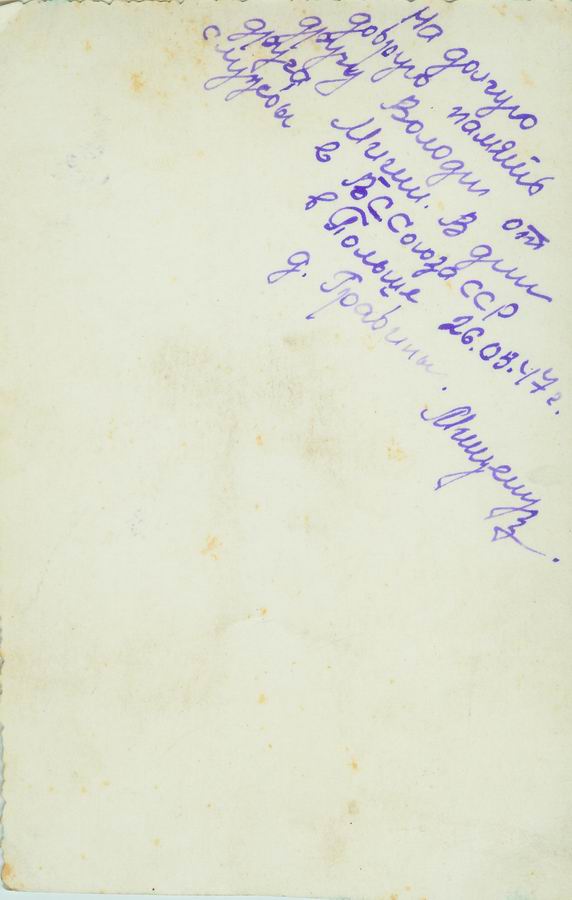 На долгую
добрую память
другу Володи от
друга Миши. В дни
службы в ВССоюза ССР
в Польше 26.03.47г.
д. Гравины.